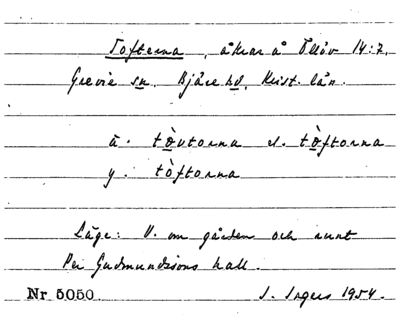 Tofterna, åkrar å Ellöv 14:2,
Grevie sn. Bjäre hd, Krist. län.
ä. tòvtorna el. tòftorna
y. tòftorna
Läge: V. om gården och runt
Per Gudmundssons hall.
Nr 5050. I. Ingers 1954.